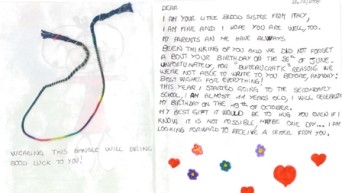 DEAR
I AM YOUR LITTLE BLOOD SISTER FROM ITALY,
I AM FINE AND I HOPE YOU ARE WELL, TOO.
MY PARENTS AND ME HAVE ALWAYS
BEEN THINKING OF YOU AND WE DID NOT FORGET
ABOUT YOUR BIRTHDAY ON THE 26th OF JUNE.
UNFORTUNATELY, FOR "BUREAUCRATIC" REASONS WE
WERE NOT ABLE TO WRITE TO YOU BEFORE, ANYWAY:
BEST WISHES FOR EVERYTHING!
THIS YEAR I STARTED GOING TO THE SECONDARY
SCHOOL, I AM ALMOST 11 YEARS OLD, I WILL CELEBRATE
MY BIRTHDAY ON THE OF OCTOBER.
MY BEST GIFT IT WOULD BE TO HUG YOU EVEN IF I
KNOW IT IS NOT POSSIBLE, MAYBE ONE DAY... I AM
LOOKING FORWARD TO RECEIVE A LETTER FROM YOU.
WEARING THIS BANGLE WILL BRING
GOOD LUCK TO YOU!